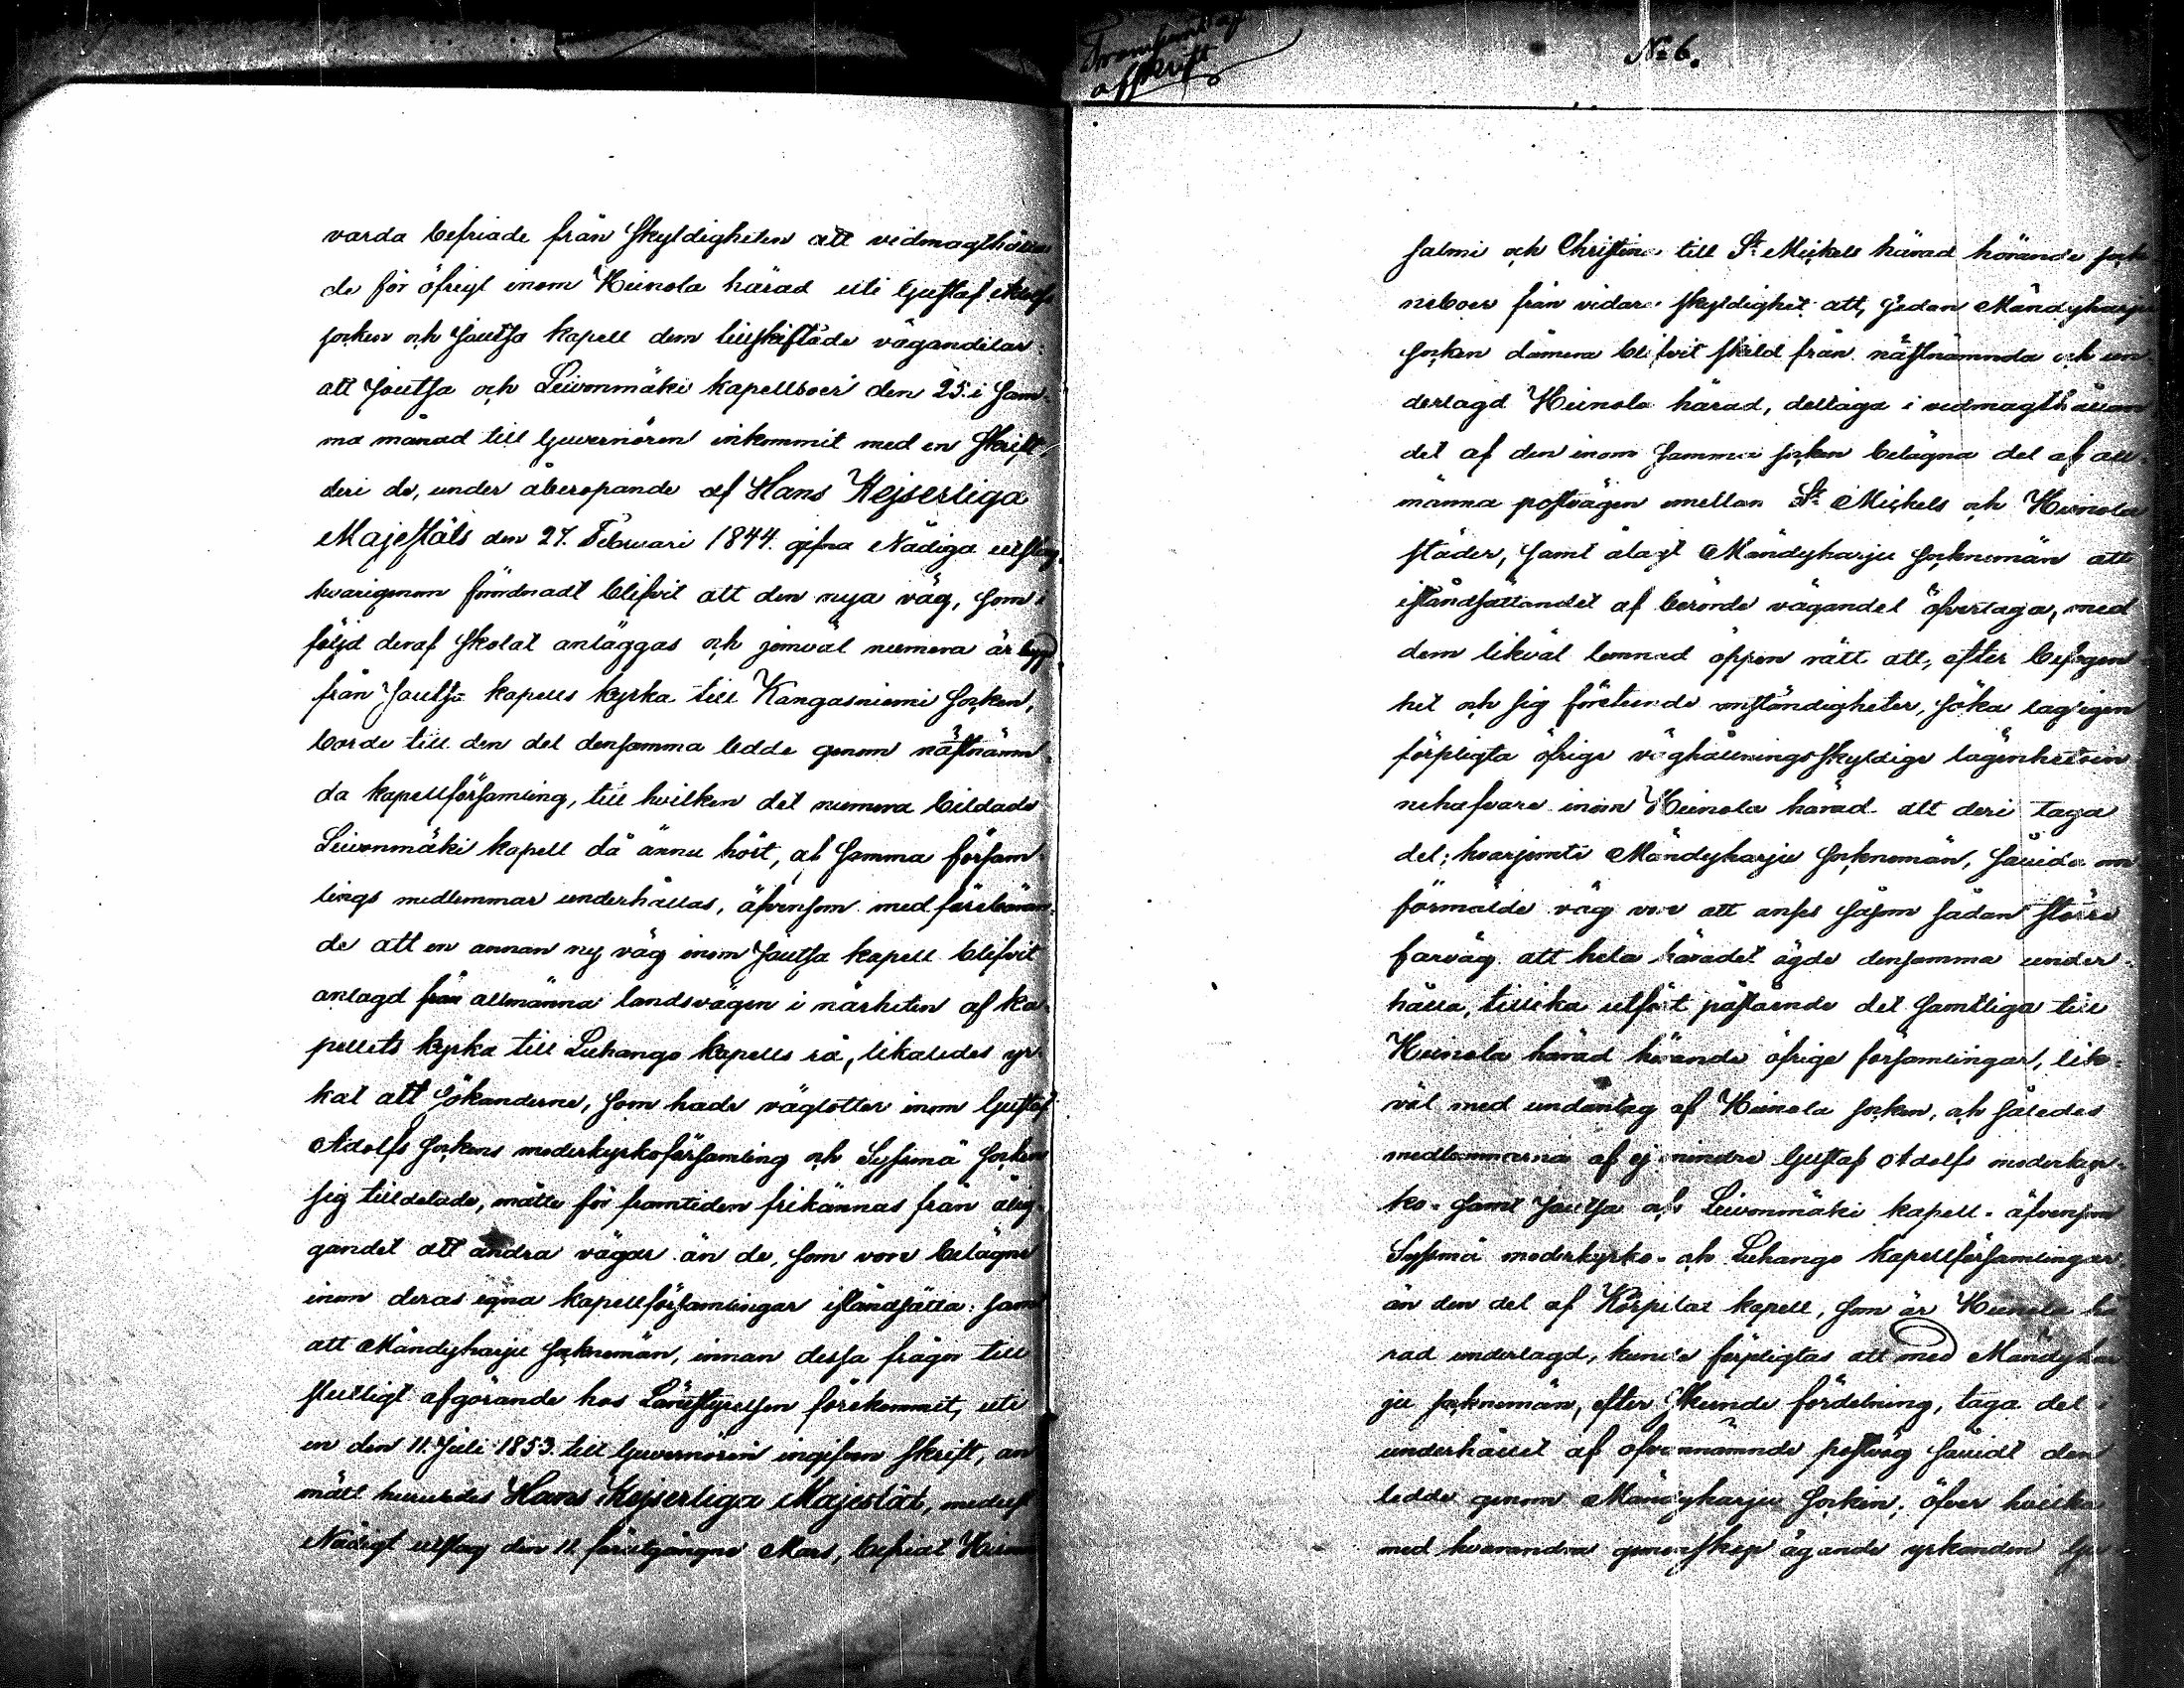 varda befriade från skyldigheten att vidmagthålla
de för öfrigt inom Heinola härad uti Gustaf Adolfs
socken och Joutsa kapell dem tillskiftade vägandelar:
att Joutsa och Leivonmäki kapellboer den 25. i sam-
ma månad till Guvernören inkommit med en skrift,
deri de, under åberopande af Hans Kejserliga
Majestäts den 27. Februari 1844. gifna Nådiga utslag,
hvarigenom förordnadt blifvit att den nya väg, som i
följd deraf skolat anläggas och jemväl numera är bygd
från Joutsa kapells kyrka till Kangasniemi socken,
borde till den del densamma ledde genom nästnämn-
da kapellförsamling, till hvilken det numera bildade
Leivonmäki kapell då ännu hört, af samma försam-
lings medlemmar underhållas, äfvensom med förebäran-
de att en annan ny väg inom Joutsa kapell blifvit
anlagd från allmänna landsvägen i närheten af ka-
pellets kyrka till Luhango kapells rå, likaledes yr-
kat att sökanderne, som hade väglotter inom Gustaf
Adolfs sockens moderkyrkoförsamling och Sysmä socken
sig tilldelade, måtte för framtiden frikännas från ålig-
gandet att andra vägar än de, som vore belägne
inom deras egna kapellförsamlingar iståndsätta: samt
att Mändyharju socknemän, innan dessa frågor till
slutligt afgörande hos Länestyrelsen förekommit, uti
en den 11. Juli 1853. till Guvernören ingifven skrift, an-
mält hurusom Hans Kejserliga Majestät, medelst
Nådigt utslag den 11. förutgångne Mars, befriat Hirven-
Transsumt af
afskrift
No 6.
salmi och Christina till St. Michels härad hörande sock-
neboer från vidare skyldighet att, sedan Mändyharju
socken dömera blifvit skild från nästnämnda och un-
derlagd Heinola härad, deltaga i vidmagthållan-
det af den inom samma socken belägna del af all-
männa postvägen emellan St. Michels och Heinola
städer, samt ålagt Mändyharju socknemän att
iståndsättandet af berörde vägandel öfvertaga, med
dem likväl lemnad öppen rätt att, efter befogen-
het och sig företeende omständigheter, söka lagligen
förpligta öfrige väghållningsskyldige lägenhetsin-
nehafvare inom Heinola härad att deri taga
del; hvarjemte Mändyharju socknemän, såvida om-
förmälde väg vore att anses såsom sådan större
farväg att hela häradet ägde densamma under-
hålla, tillika utfört påstående det samtliga till
Heinola härad hörande öfrige församlingar, lik-
väl med undantag af Heinola socken, och således
medlemmarna af ej mindre Gustaf Adolfs moderkyr-
ko- samt Joutsa och Leivonmäki kapell- äfvensom
Sysmä moderkyrko- och Luhango kapellförsamlingar
än den del af Korpilax kapell, som är Heinola hä-
rad underlagd, kunde förpligtas att med Mändyhar-
ju socknemän, efter skeende fördelning, taga del i
underhållet af ofvannämnde postväg såvidt den
ledde genom Mändyharju socken; öfver hvilka
med hvarandra gemenskap ägande yrkanden Gu-